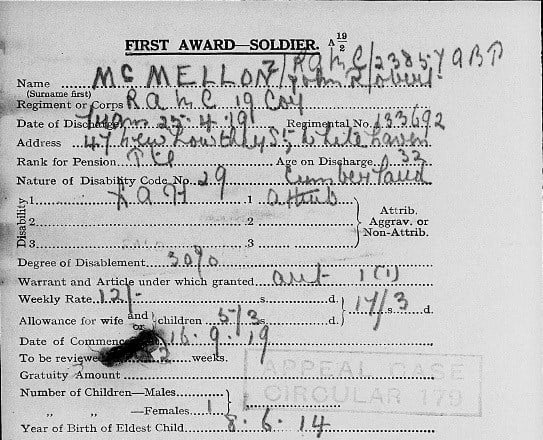 FIRST AWARD—SOLDIER. A 19/2
Name McMELLON John Robert 7/RAMC/2385
(Surname first)
Regiment or Corps RAMC 19 Coy
Date of Discharge 25-4-19 Regimental No. 133692
Address 47 St, Whitehaven
Rank for Pension Pte Age on Discharge 32
Nature of Disability Code No. 29 Cumberland
Disability
1 1 Attrib
2 2
3 3
Attrib. Aggrav. or Non-Attrib.
Degree of Disablement 30%
Warrant and Article under which granted 1(1)
Weekly Rate 12/- s. d. 17/3 d.
Allowance for wife and or children 5/3 s. d.
Date of Commenc 16-9-19
To be reviewed 52 weeks.
Gratuity Amount
APPEAL CASE
CIRCULAR 179
Number of Children—Males
„ „ —Females 1
Year of Birth of Eldest Child 8-6-14